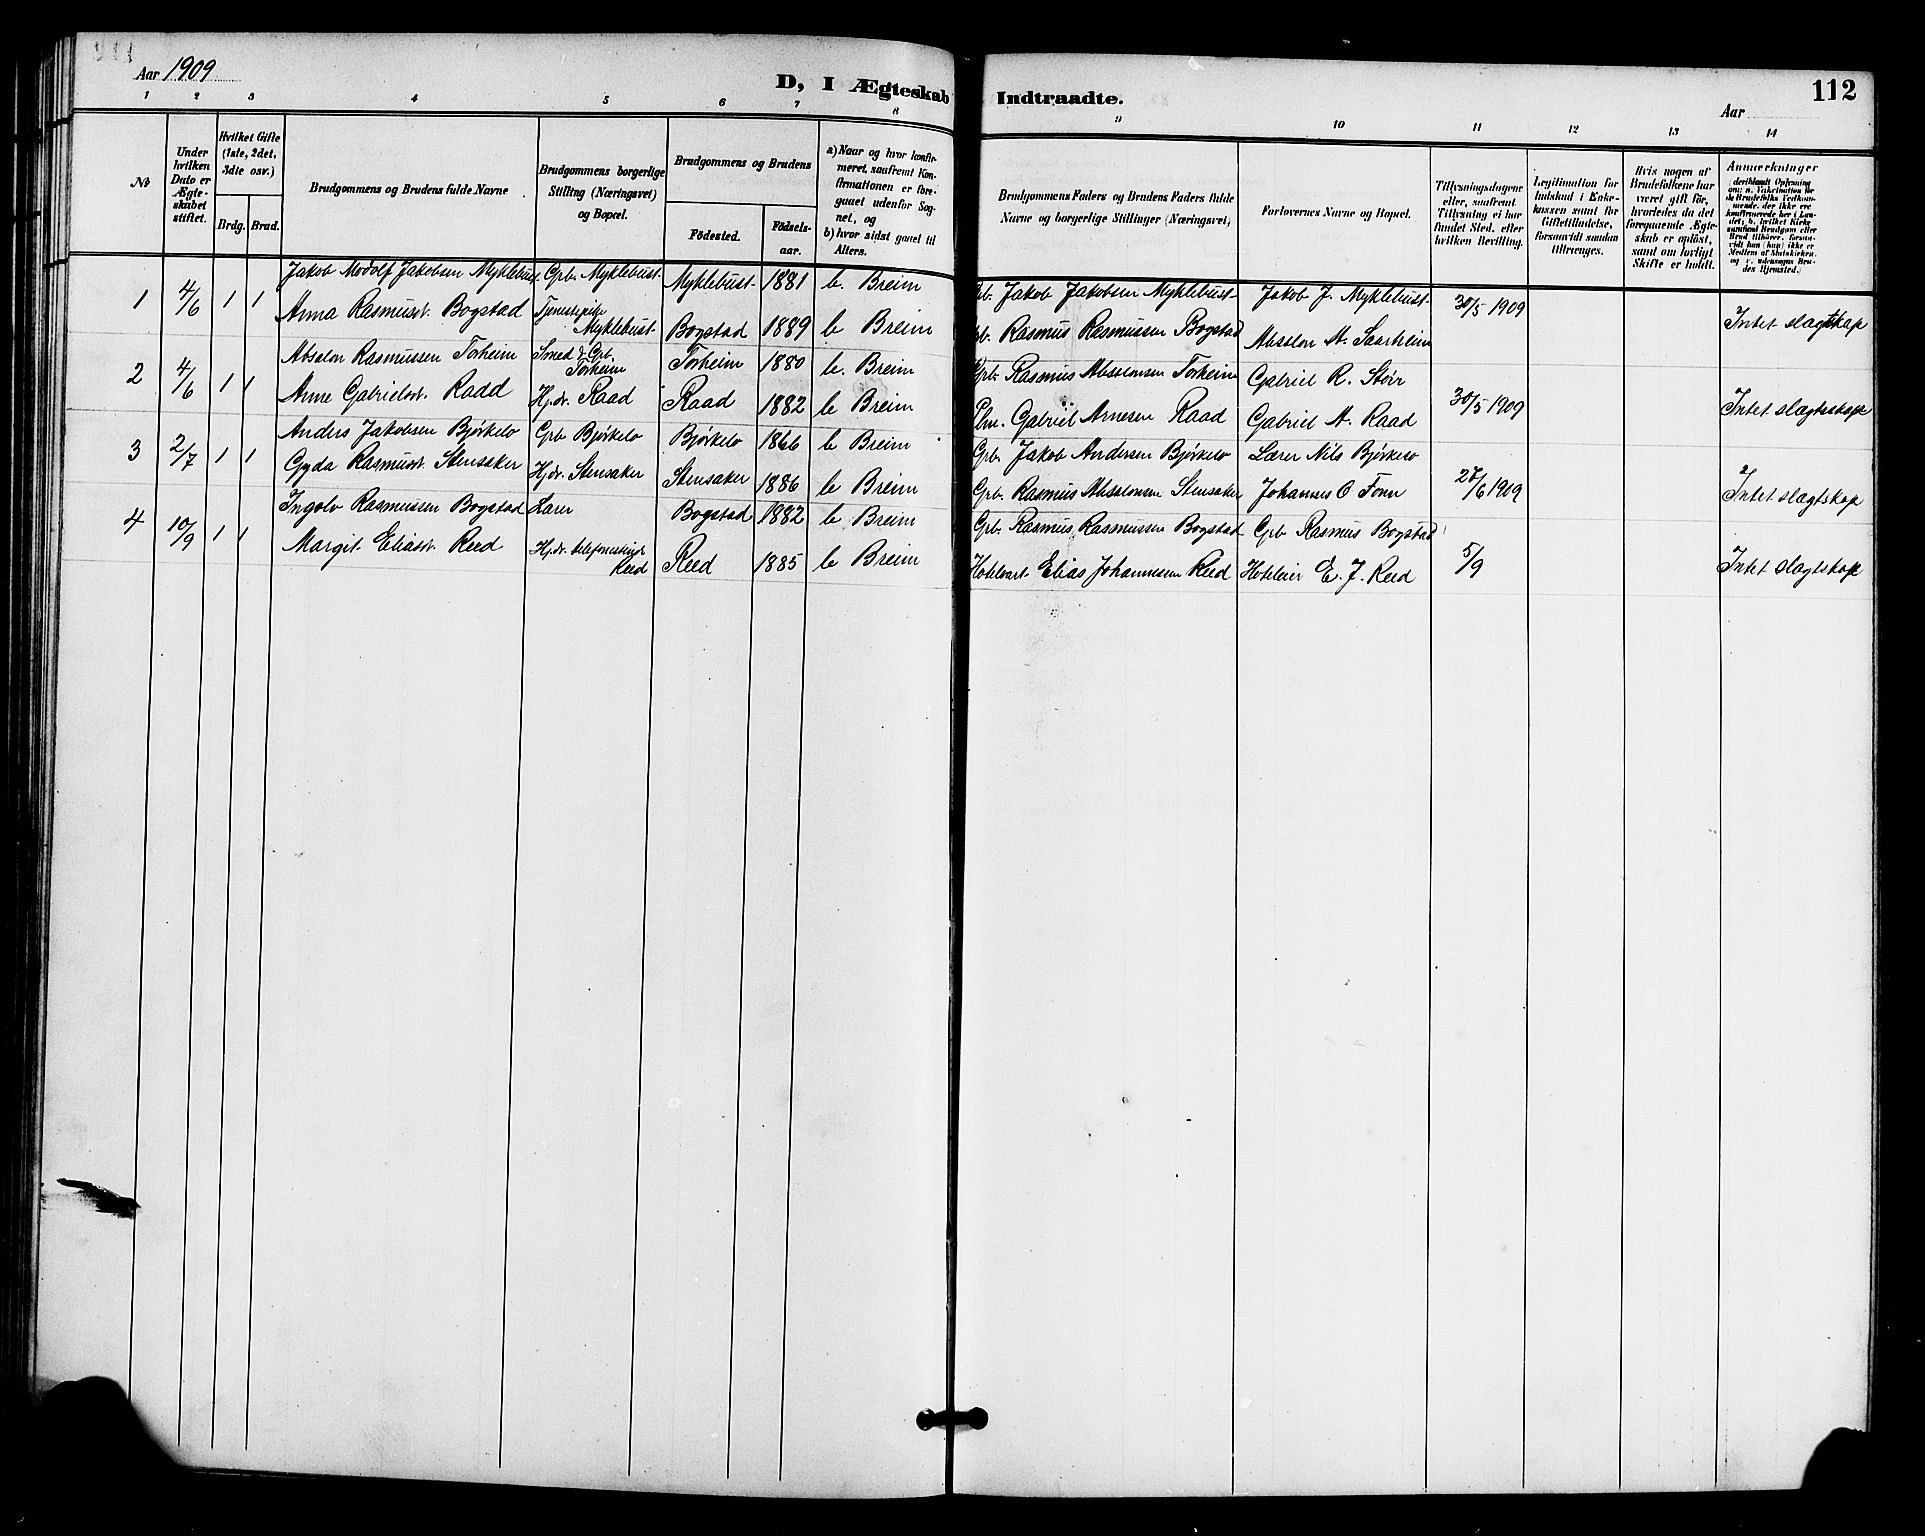 Aar 1909
D, I Ægteskab
Indtraadte.
Aar
112
1 2 3 4 5 6 7 8
9 10 11 12 13 14
№
Under hvilken Dato er Ægteskabet stiftet.
Hvilket Gifte (1ste, 2det, 3die osv.)
Brdg. Brud.
Brudgommens og Brudens fulde Navne
Brudgommens borgerlige Stilling (Næringsvei) og Bopæl.
Brudgommens og Brudens
Födested.
Födsels-aar.
a) Naar og hvor konfirmeret, saafremt Konfirmationen er foregaaet udenfor Sognet, og
b) hvor sidst gaaet til Alters.
Brudgommens Faders og Brudens Faders fulde Navne og borgerlige Stillinger (Næringsvei)
Forlovernes Navne og Bopæl.
Tillysningsdagene eller, saafremt Tillysning ei har fundet Sted, efter hvilken Bevilling.
Legitimation for Indskud i Enkekassen samt for Giftetilladelse, forsaavidt saadan tiltrænges.
Hvis nogen af Brudefolkene har været gift för, hvorledes da det foregaaende Ægteskab er oplöst, samt om lovligt Skifte er holdt.
Anmærkninger
1 4/6 1 1
Jakob Modolf Jakobsen Myklebust Grb. Myklebust Myklebust 1881 b. Breim
Anna Rasmusdt. Bogstad Tjenestepige Myklebust Bogstad 1889 b Breim
2 4/6 1 1
Absalon Rasmussen Torheim Smed & Grb. Torheim Torheim 1880 b. Breim
Anne Gabrielsdt. Raad Hj.dt. Raad Raad 1882 b Breim
3 2/7 1 1
Anders Jakobsen Bjørkelo Grb Bjørkelo Bjørkelo 1866 b Breim
Gyda Rasmusdt. Stensaker Hj.dt. Stensaker Stensaker 1886 b Breim
4 10/9 1 1
Ingolv Rasmussen Bogstad Lærer Bogstad 1882 b Breim
Margit Eliasdt. Reed Hj.dt. Reed Reed 1885 b Breim
Grb. Jakob Jakobsen Myklebust Jakob J. Myklebust 30/5 1909
Grb. Rasmus Rasmussen Bogstad Absalon A. Intet slægtskap
Grb. Rasmus Absalonsen Torheim Gabriel R. Støir
Plm. Gabriel Arnesen Raad Gabriel A. Raad 30/5 1909 Intet slægtsskap
Grb. Jakob Andersen Bjørkelo Lærer Nils Bjørkelo
Grb. Rasmus Absalonsen Stensaker Johannes O Fonn 27/6 1909 Intet slægtskap
Grb. Rasmus Rasmussen Bogstad Grb Rasmus Bogstad
Hotelvært Elias Johannessen Reed Hoteleier E. J. Reed 5/9 Intet slægtskap